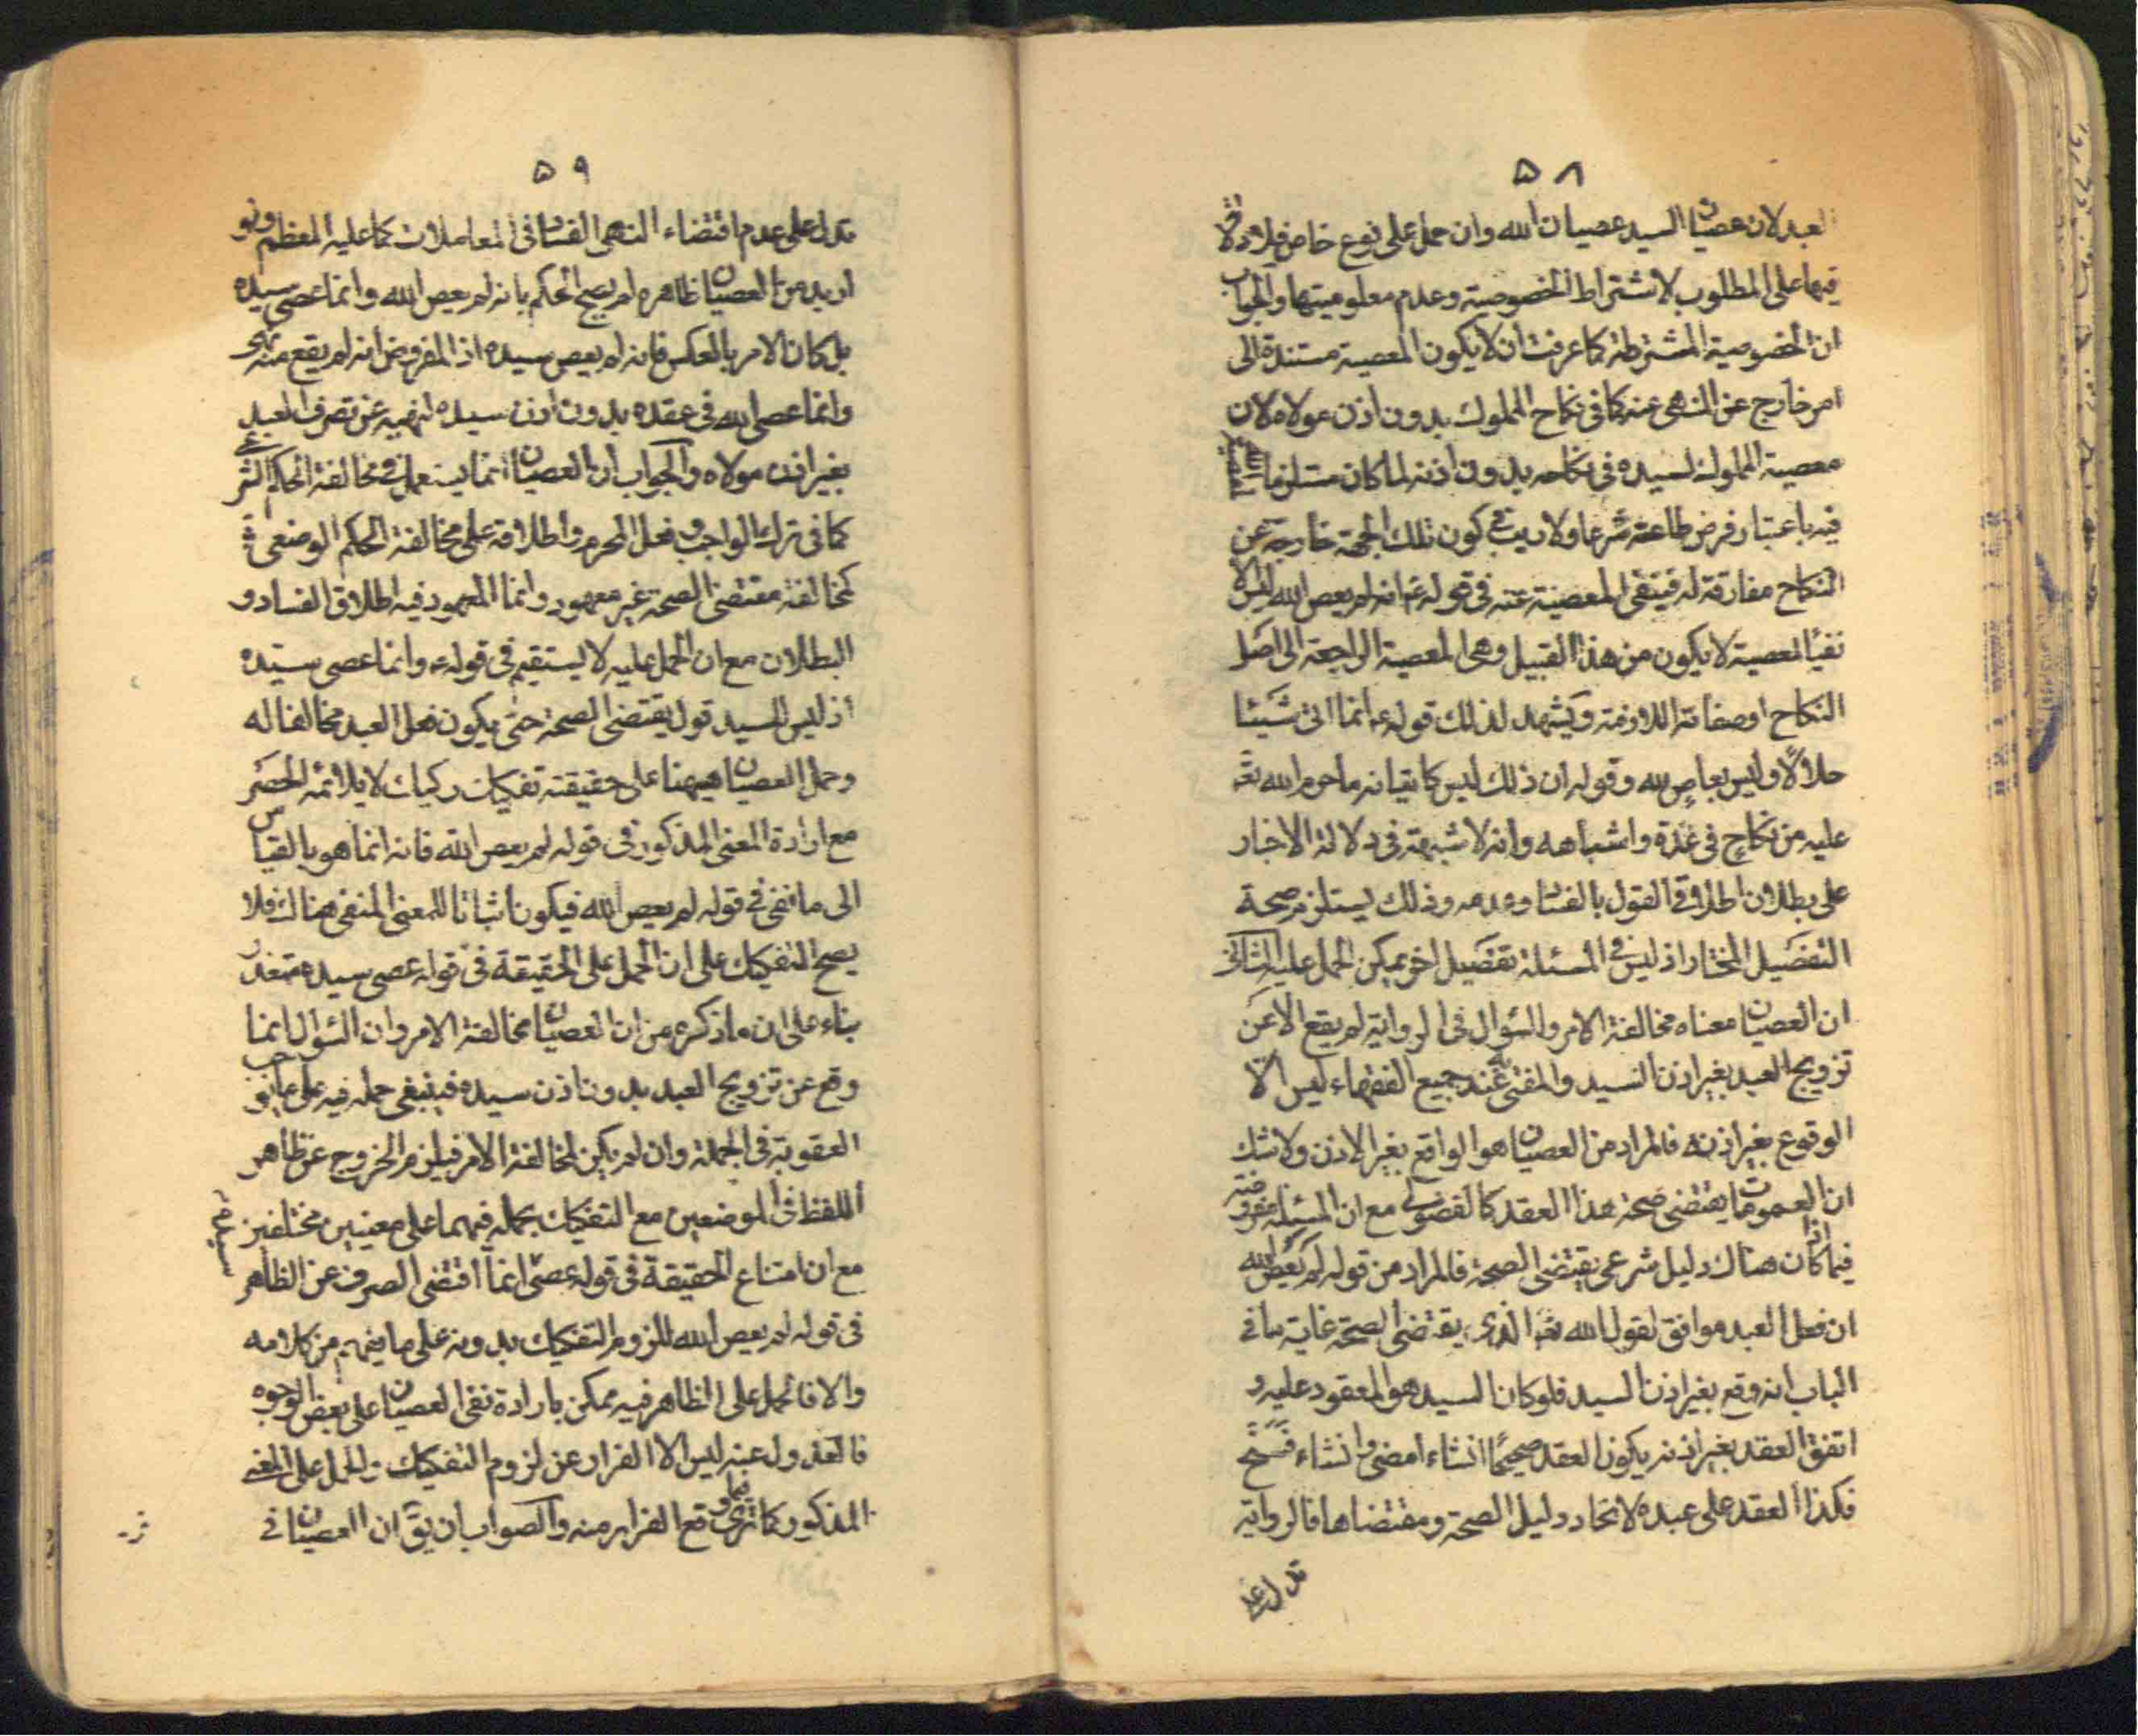 ۵۸
العبد لان عصيان السيد عصيان الله وان حمل على نوع خاص فلا دلالة
فيها على المطلوب لاشتراط الخصوصية وعدم معلوميتها والجواب
ان الخصوصية المشترطة كما عرفت ان لا يكون المعصية مستندة الى
امر خارج عن النهى عنه كما فى نكاح المملوك بدون اذن مولاه لان
معصية المملوك لسيده فى نكاحه بدون اذنه لما كان مستلزما
فيه باعتبار فرض طاعته شرعا ولا ريب فى كون تلك الجهة خارجة عن
النكاح مفارقة له فينتفى المعصية عنه فى قوله ع انه لم يعص الله ليس الا
نفى المعصية لا يكون من هذا القبيل وهى المعصية الراجعة الى اصل
النكاح او صفاته اللازمة ويشهد لذلك قوله ع انما اتى شيئا
حلالا وليس بعاص لله وقوله ان ذلك ليس كاتيانه ما حرم الله تع
عليه من نكاح فى عدة واشباهه وانه لا شبهة فى دلالة الاخبار
على بطلان اطلاق القول بالفساد وعدمه وذلك يستلزم صحة
التفصيل المختار اذ ليس فى المسئلة تفصيل اخر يمكن الحمل عليه الثانى
ان العصيان معناه مخالفة الامر والسؤال فى الرواية لم يقع الا عن
تزويج العبد بغير اذن السيد والمفتى به عند جميع الفقهاء ليس الا
الوقوع بغير اذنه فالمراد من العصيان هو الواقع بغير الاذن ولا شك
ان العمومات يقتضى صحة هذا العقد كالفضولى مع ان المسئلة مفروضة
فيما اذا كان هناك دليل شرعى يقتضى الصحة فالمراد من قوله لم يعص الله
ان فعل العبد موافق لقول الله تع الذى يقتضى الصحة غاية ما فى
الباب انه وقع بغير اذن السيد فلو كان السيد هو المعقود عليه و
اتفق العقد بغير اذنه يكون العقد صحيحا ان شاء امضى وان شاء فسخ
فكذا العقد على عبده لاتحاد دليل الصحة ومقتضاها فالرواية
تدل على
۵۹
تدل على عدم اقتضاء النهى الفساد فى المعاملات كما عليه المعظم ولو
اريد من العصيان ظاهره لم يصح الحكم بانه لم يعص الله وانما عصى سيده
بل كان الامر بالعكس فانه لم يعص سيده اذ المفروض انه لم يقع منه نهى
وانما عصى الله فى عقده بدون اذن سيده لنهيه عن تصرف العبد
بغير اذن مولاه والجواب ان العصيان انما يستعمل فى مخالفة الحكم الشرعى
كما فى ترك الواجب وفعل المحرم واطلاقه على مخالفة الحكم الوضعى
كمخالفة مقتضى الصحة غير معهود وانما المعهود فيه اطلاق الفساد و
البطلان مع ان الحمل عليه لا يستقيم فى قوله ع وانما عصى سيده
اذ ليس للسيد قول يقتضى الصحة حتى يكون فعل العبد مخالفا له
وحمل العصيان هيهنا على حقيقته تفكيك ركيك لا يلائمه الحصر
مع ارادة المعنى المذكور فى قوله لم يعص الله فانه انما هو بالقياس
الى ما نفى فى قوله لم يعص الله فيكون اثباتا للمعنى المنفى هناك فلا
يصح التفكيك على ان الحمل على الحقيقة فى قوله عصى سيده متعذر
بناء على ان ما ذكره من ان العصيان مخالفة الامر وان السؤال انما
وقع عن تزويج العبد بدون اذن سيده فينبغى حمله فيه على ما يوجب
العقوبة فى الجملة وان لم يكن لمخالفة الامر فيلزم الخروج عن ظاهر
اللفظ فى الموضعين مع التفكيك بحمله فيهما على معنيين مختلفين
مع ان امتناع الحقيقة فى قوله عصى انما اقتضى الصرف عن الظاهر
فى قوله لم يعص الله للزوم التفكيك بدونه على ما يفهم من كلامه
والا فالحمل على الظاهر فيه ممكن بارادة نفى العصيان على بعض الوجوه
فالعدول عنه ليس الا الفرار عن لزوم التفكيك والحمل على المعنى
المذكور كما ترى وقع فيما الفرار منه والصواب ان يق ان العصيان فى